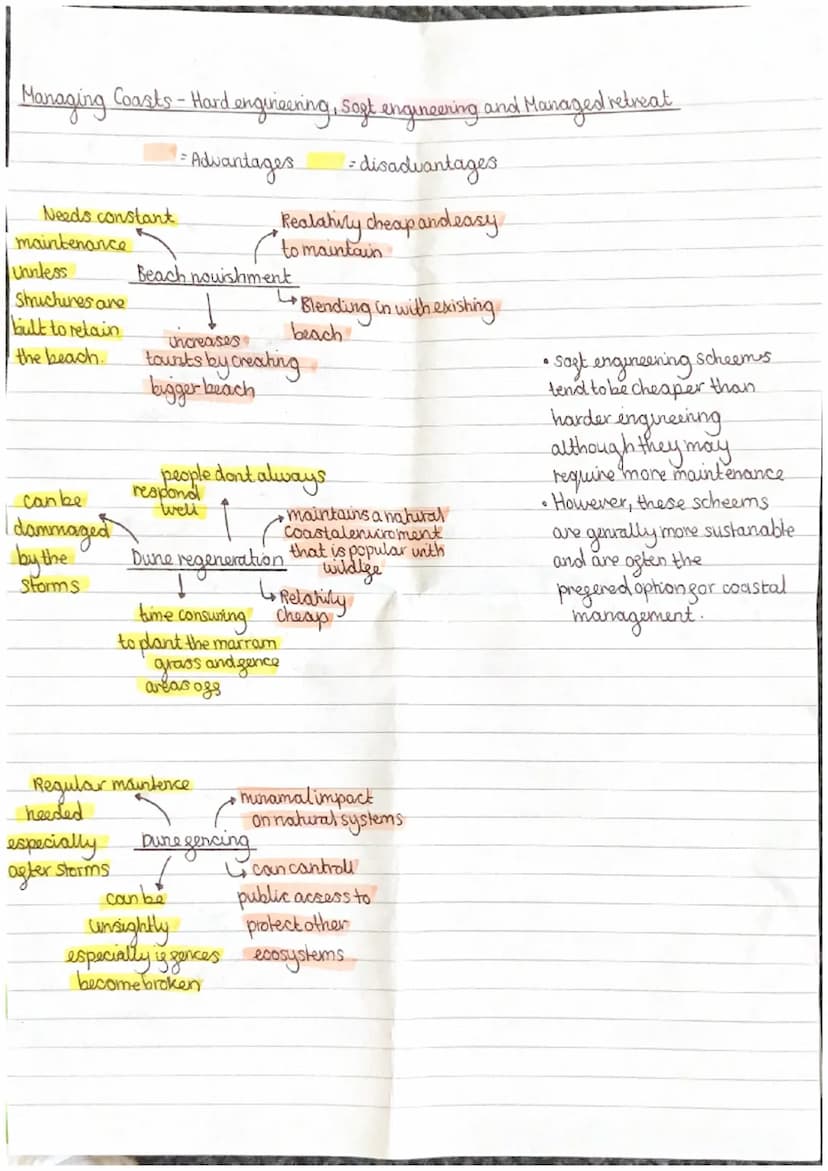 Managing Coasts - Hard engineering, Soft engineering and Managed retreat
= Advantages = disadvantages
Needs constant
maintenance
unnless
Structures are
built to retain
the beach.
Realativly cheap and easy
to maintain
Beach nourishment
Blending in with existing
beach
increases
tourits by creating
bigger beach
• soft engineering scheems
tend to be cheaper than
harder engineering
although they may
require more maintenance
• However, these scheems
are genrally more sustanable
and are often the
prefered option for coastal
management.
people dont always
respond
well
can be
dammaged
by the
Storms
maintains a natural
coastal enviroment
that is popular with
wildlfe
Dune regeneration
Relativly
cheap
time consuring
to plant the marram
grass and fence
areas off
Regular maintence
needed
especially
after storms
minamal impact
on natural systems
Dune fencing
can controll
public access to
protect other
ecosystems
can be
unsightly
especially if fences
become broken